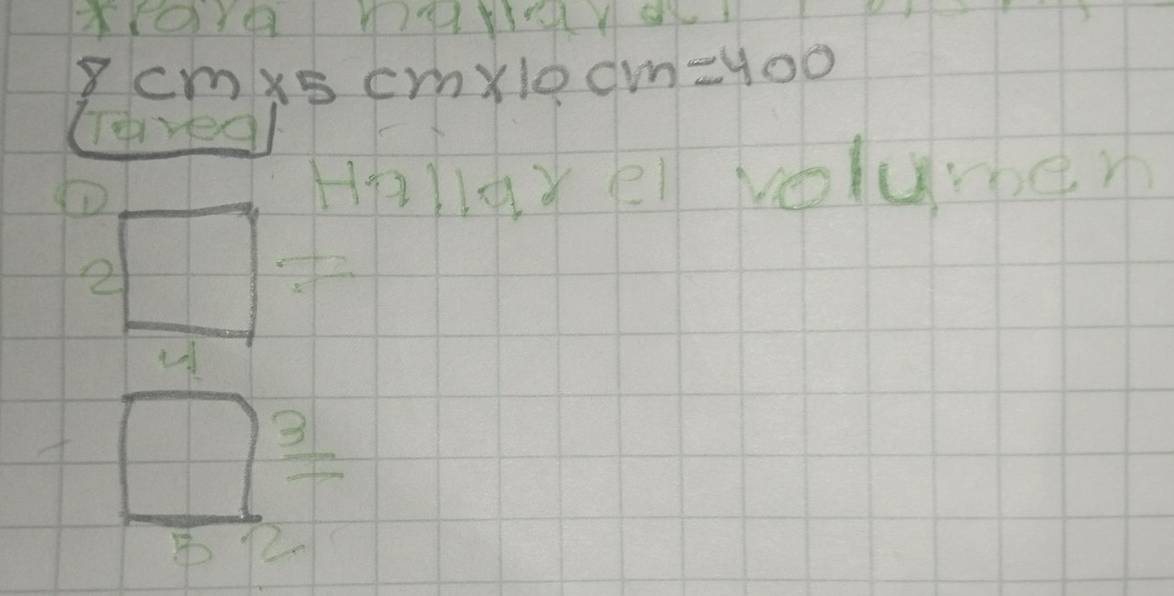 8 cm x 5 cm x 10 cm = 400
Tarea
① Hallar el volumen
2 =
4
3 =
5 2